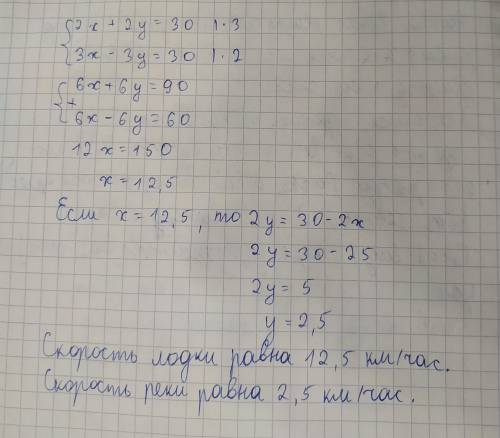 2x + 2y = 30 | · 3
3x - 3y = 30 | · 2
6x + 6y = 90
+
6x - 6y = 60
12x = 150
x = 12,5
Если x = 12,5, то 2y = 30 - 2x
2y = 30 - 25
2y = 5
y = 2,5
Скорость лодки равна 12,5 км/час.
Скорость реки равна 2,5 км/час.